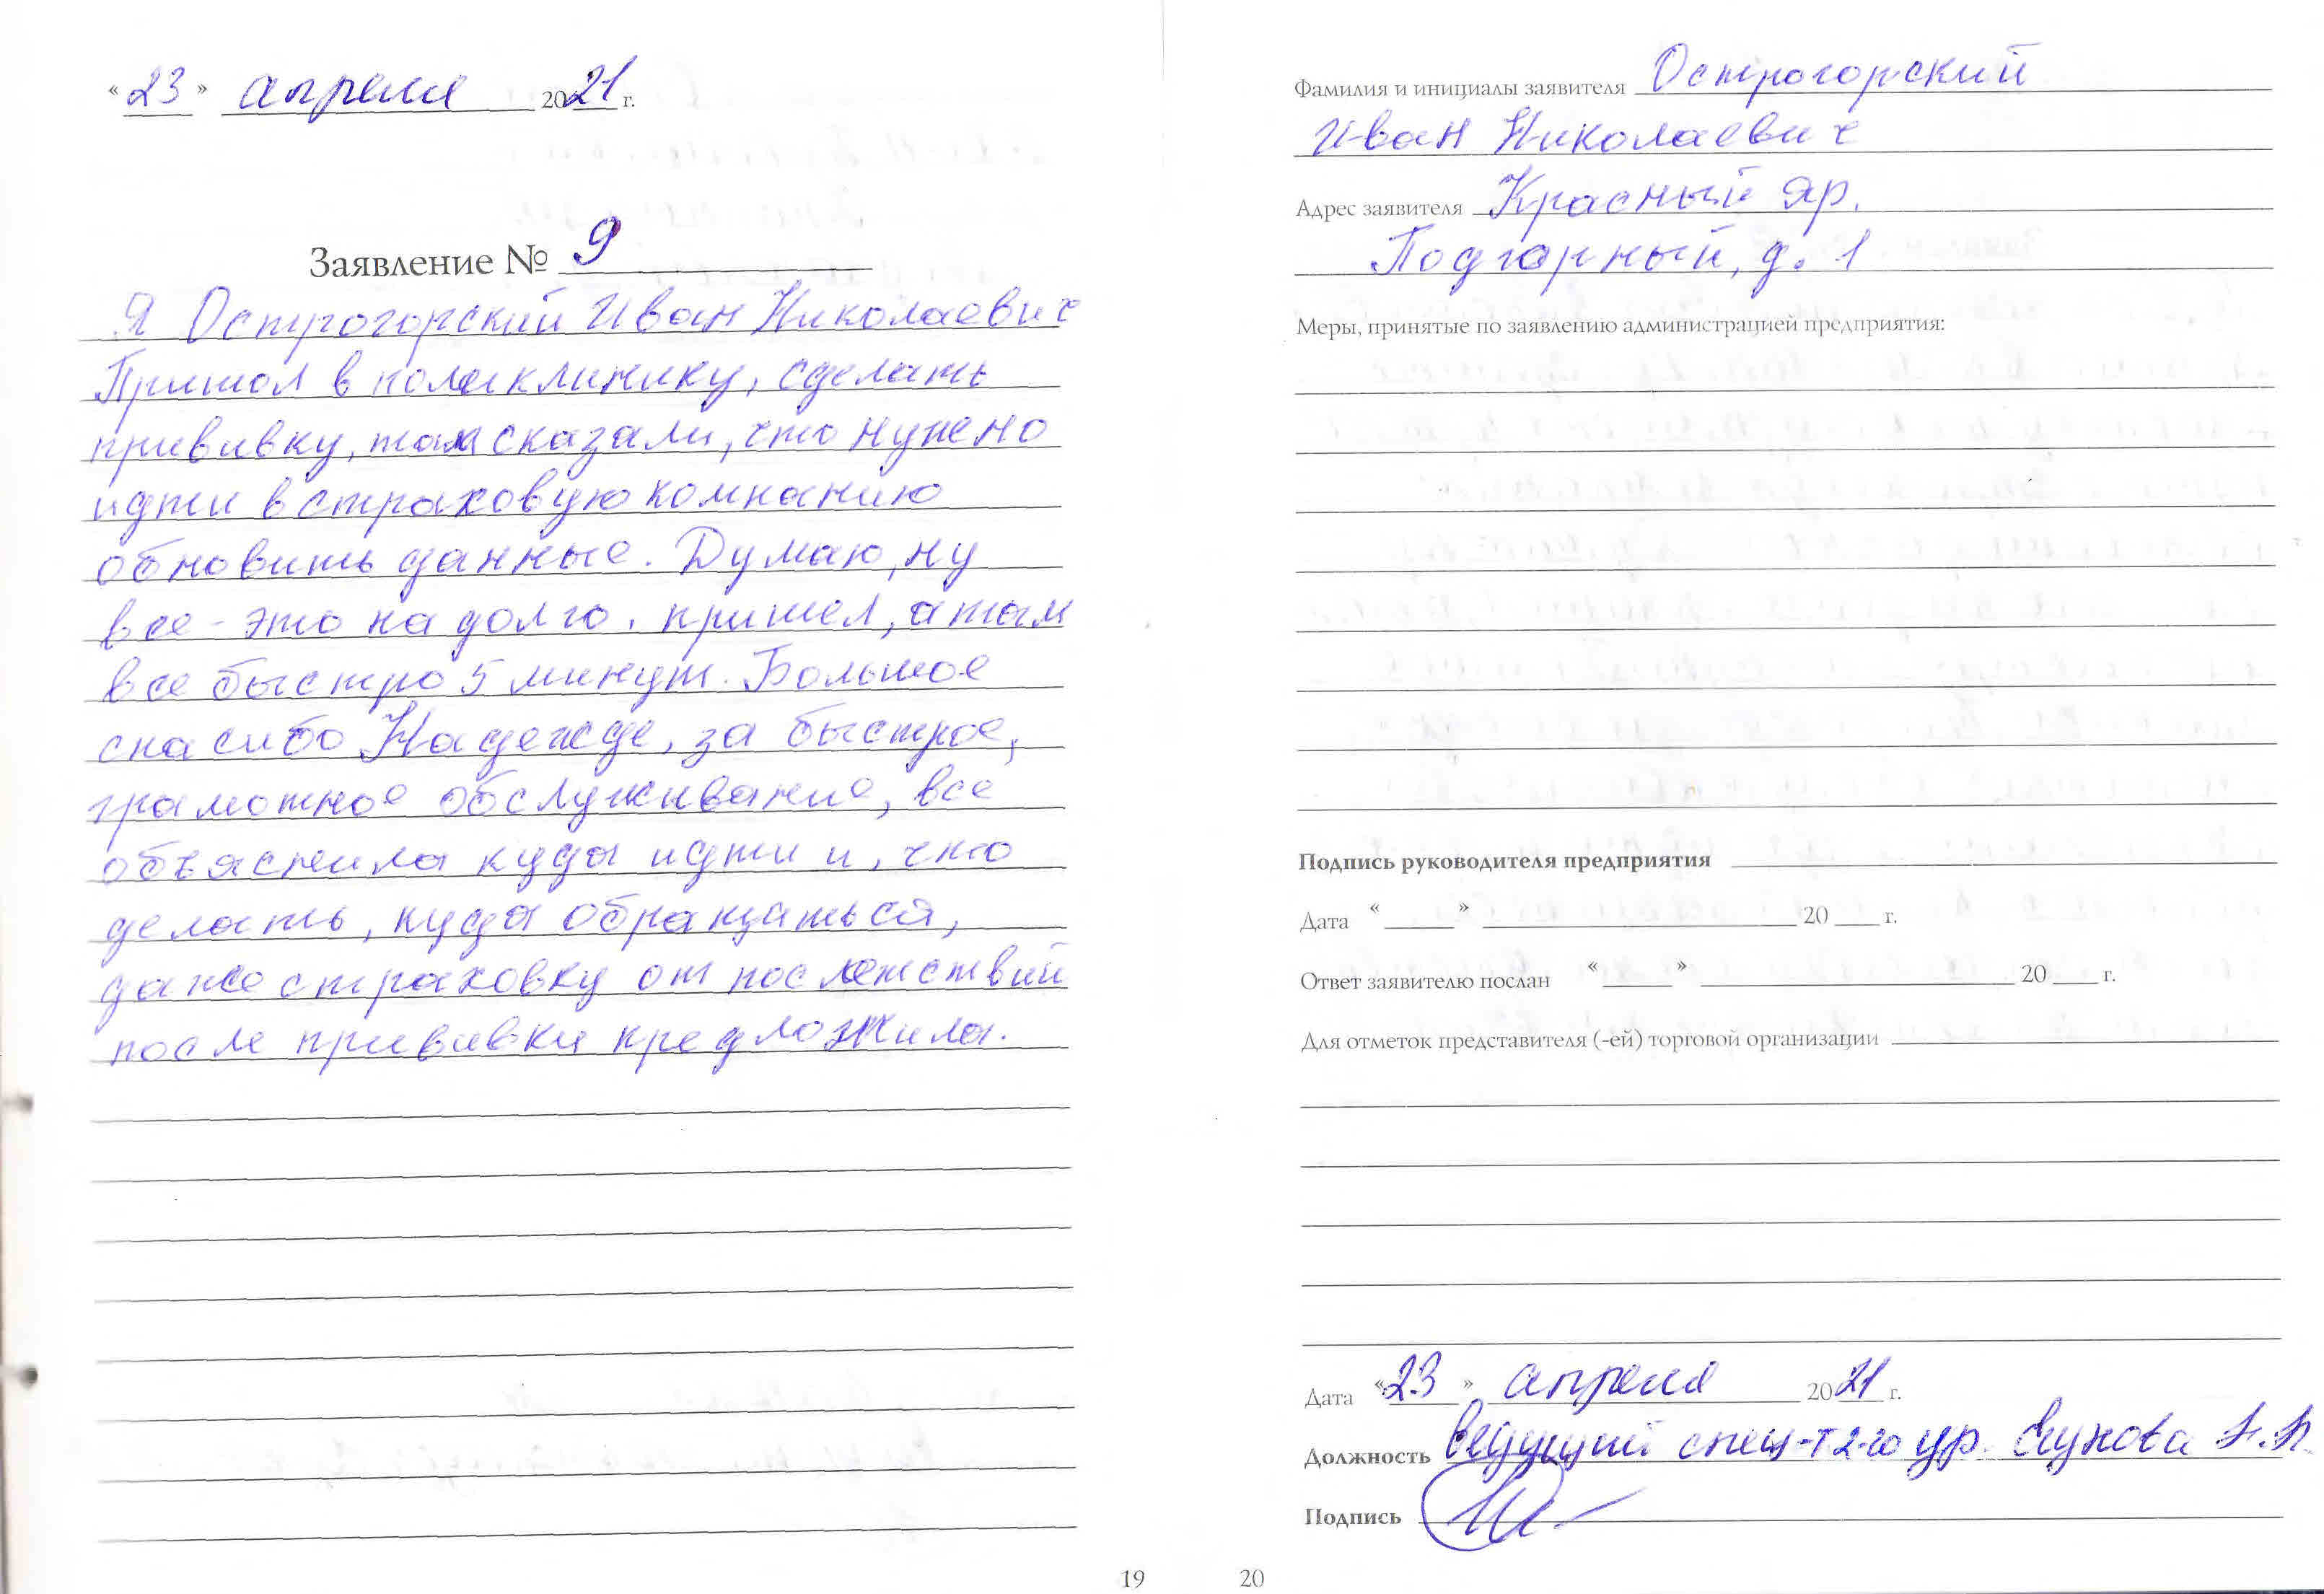 « 23 » апреля 2021 г.
Заявление № 9
Я Острогорский Иван Николаевич
Пришол в поликлинику, сделать
прививку, там сказали, что нужно
идти в страховую компанию
обновить данные. Думаю, ну
все - это на долго. пришел, а там
все быстро 5 минут. Большое
спасибо Надежде, за быстрое,
грамотное обслуживание, все
объяснила куда идти и, что
делать, куда обращаться,
даже страховку от послетствий
после прививки предложила.
19
Фамилия и инициалы заявителя Острогорский
Иван Николаевич
Адрес заявителя Красный Яр.
Подгорный, д. 1
Меры, принятые по заявлению администрацией предприятия:
Подпись руководителя предприятия
Дата « » 20 г.
Ответ заявителю послан « » 20 г.
Для отметок представителя (-ей) торговой организации
Дата «23» апреля 2021 г.
Должность ведущий спец-т 2-го ур.
Подпись
20